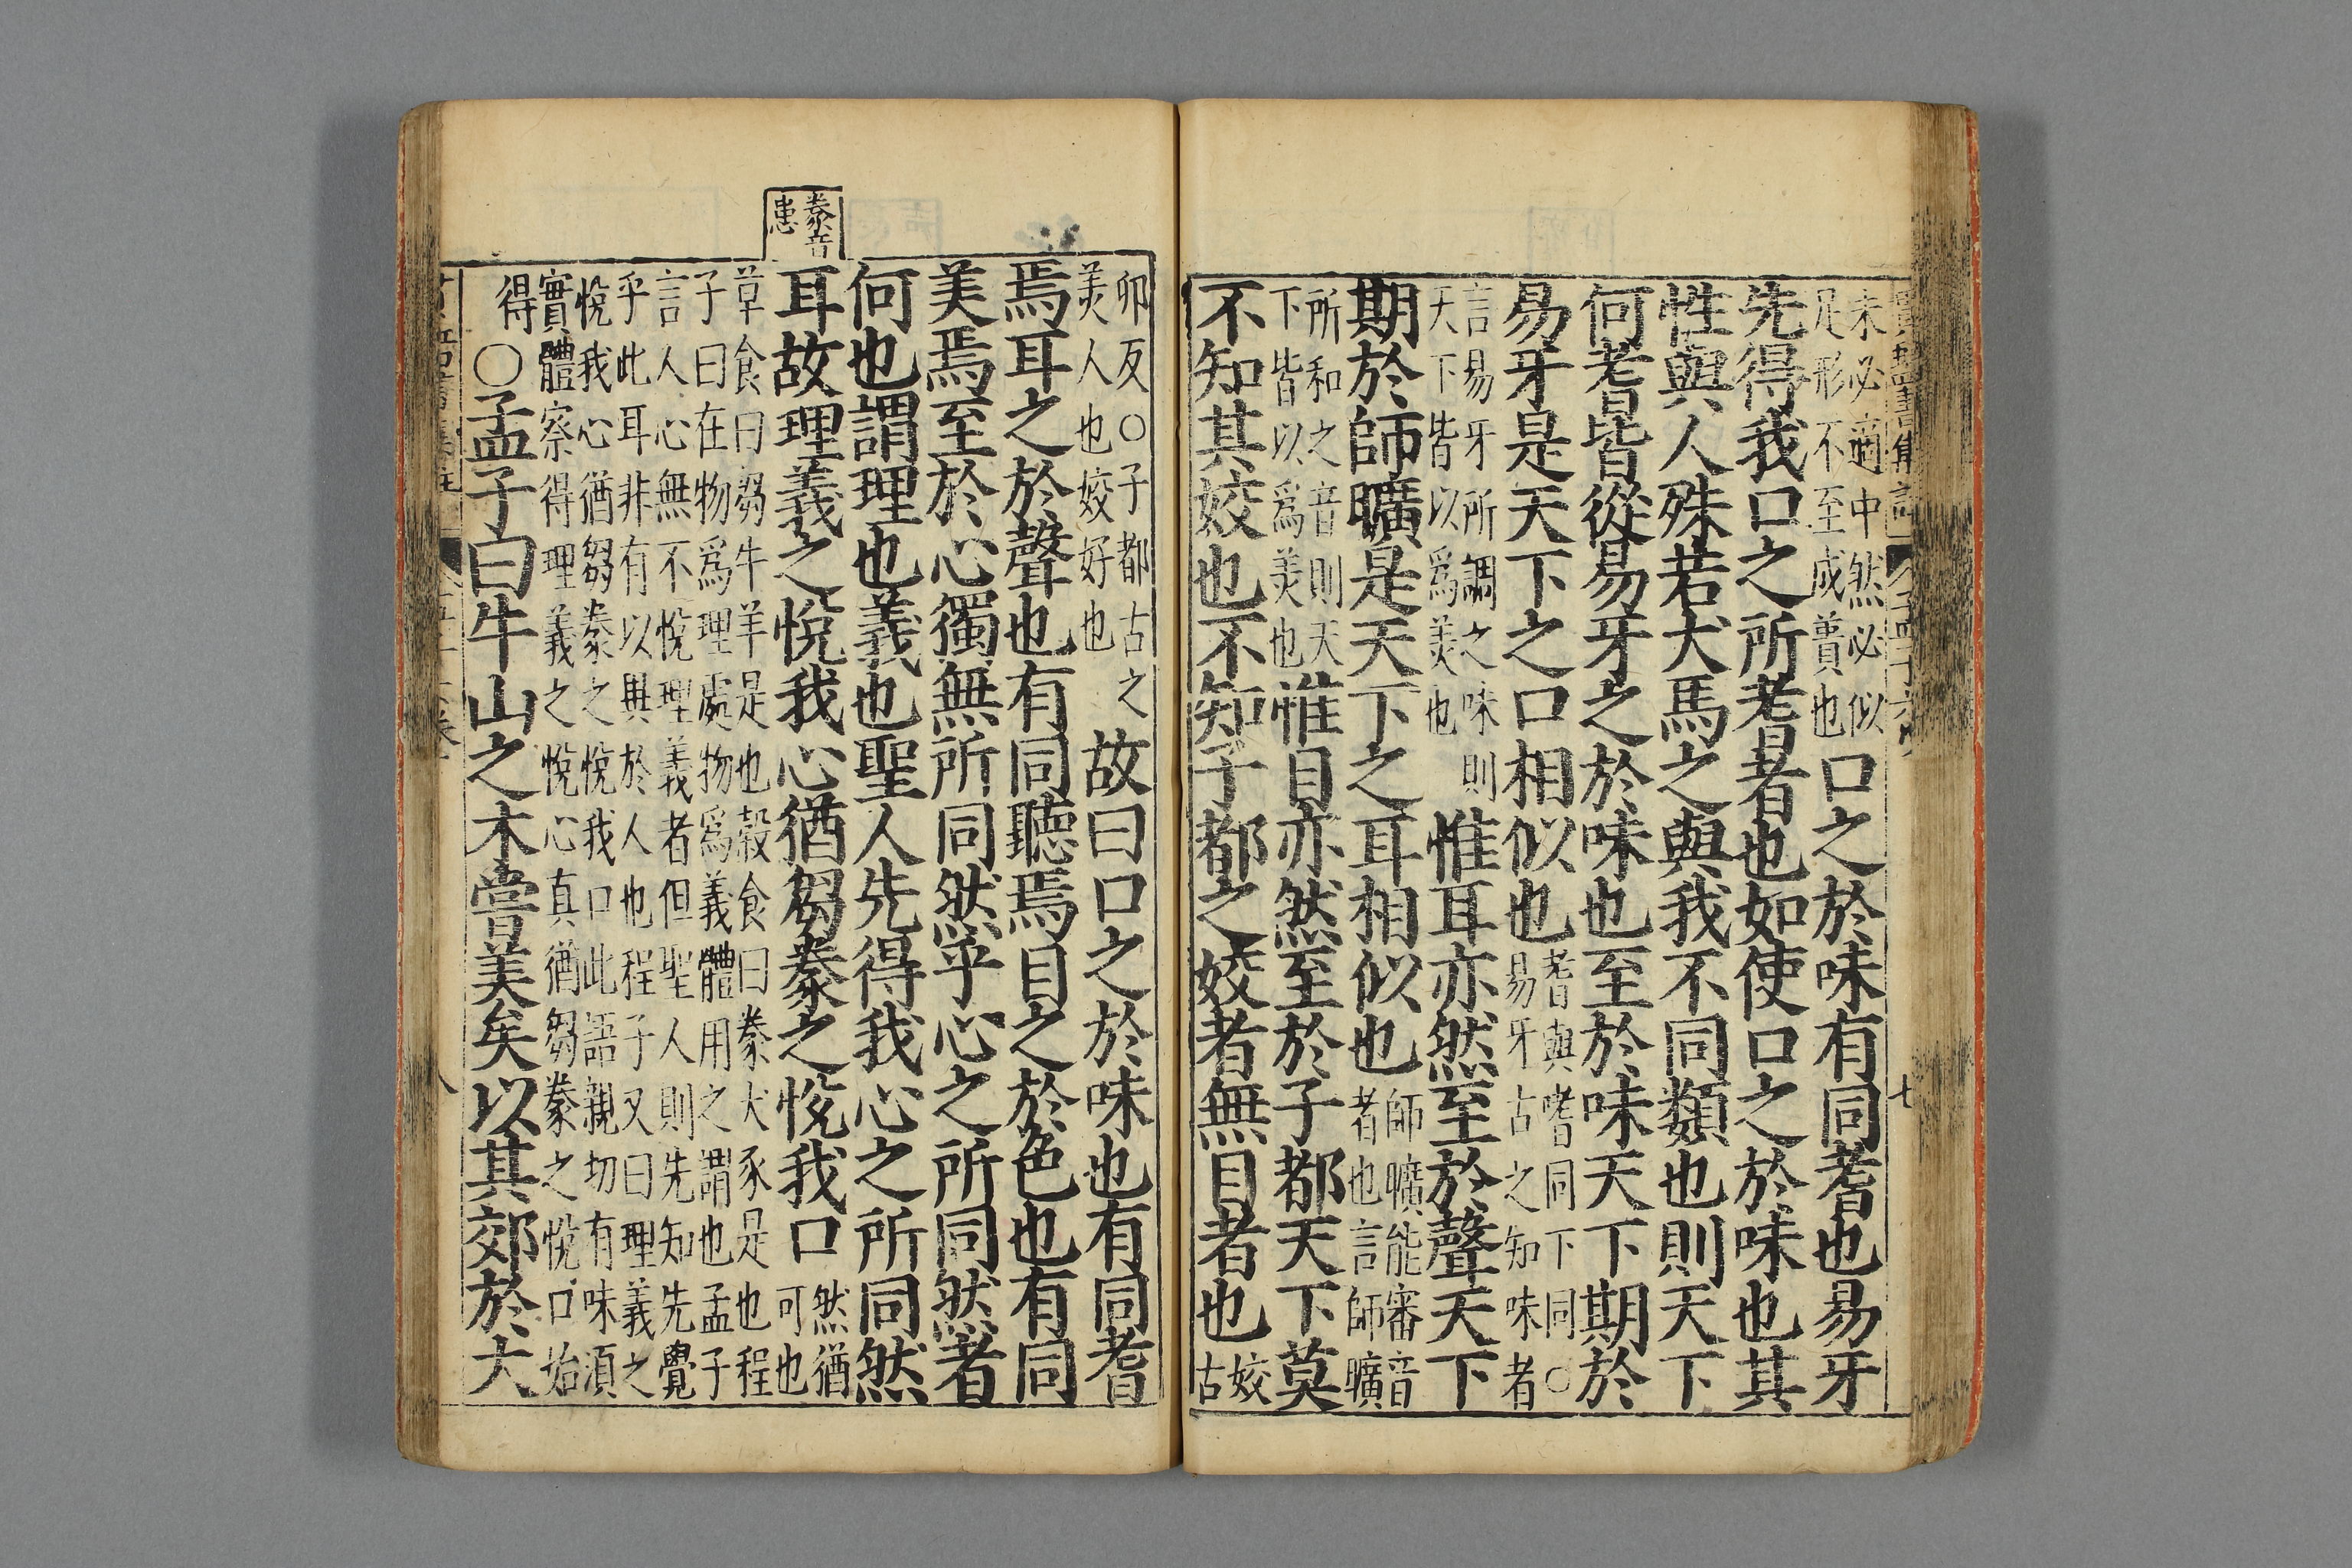 未必適中然必似
足形不至成蕢也
口之於味有同耆也易牙
先得我口之所耆者也如使口之於味也其
性與人殊若犬馬之與我不同類也則天下
何耆皆從易牙之於味也至於味天下期於
易牙是天下之口相似也
耆與嗜同下同○
易牙古之知味者
言易牙所調之味則
天下皆以爲美也
惟耳亦然至於聲天下
期於師曠是天下之耳相似也
師曠能審音
者也言師曠
所和之音則天
下皆以爲美也
惟目亦然至於子都天下莫
不知其姣也不知子都之姣者無目者也
姣
古
七
卯反○子都古之
美人也姣好也
故曰口之於味也有同耆
焉耳之於聲也有同聽焉目之於色也有同
美焉至於心獨無所同然乎心之所同然者
何也謂理也義也聖人先得我心之所同然
豢音
患
耳故理義之悅我心猶芻豢之悅我口
然猶
可也
草食曰芻牛羊是也穀食曰豢犬豕是也程
子曰在物爲理處物爲義體用之謂也孟子
言人心無不悅理義者但聖人則先知先覺
乎此耳非有以異於人也程子又曰理義之
悅我心猶芻豢之悅我口此語親切有味須
實體察得理義之悅心真猶芻豢之悅口始
得○孟子曰牛山之木嘗美矣以其郊於大
八